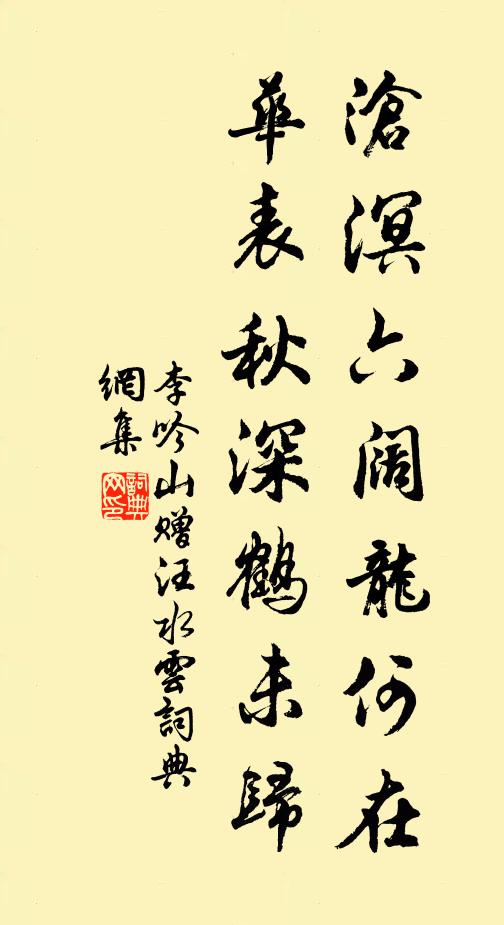 滄溟六闊龍何在
華表秋深鶴未歸
李吟山贈汪水雲詞典
網集
詞典
网印